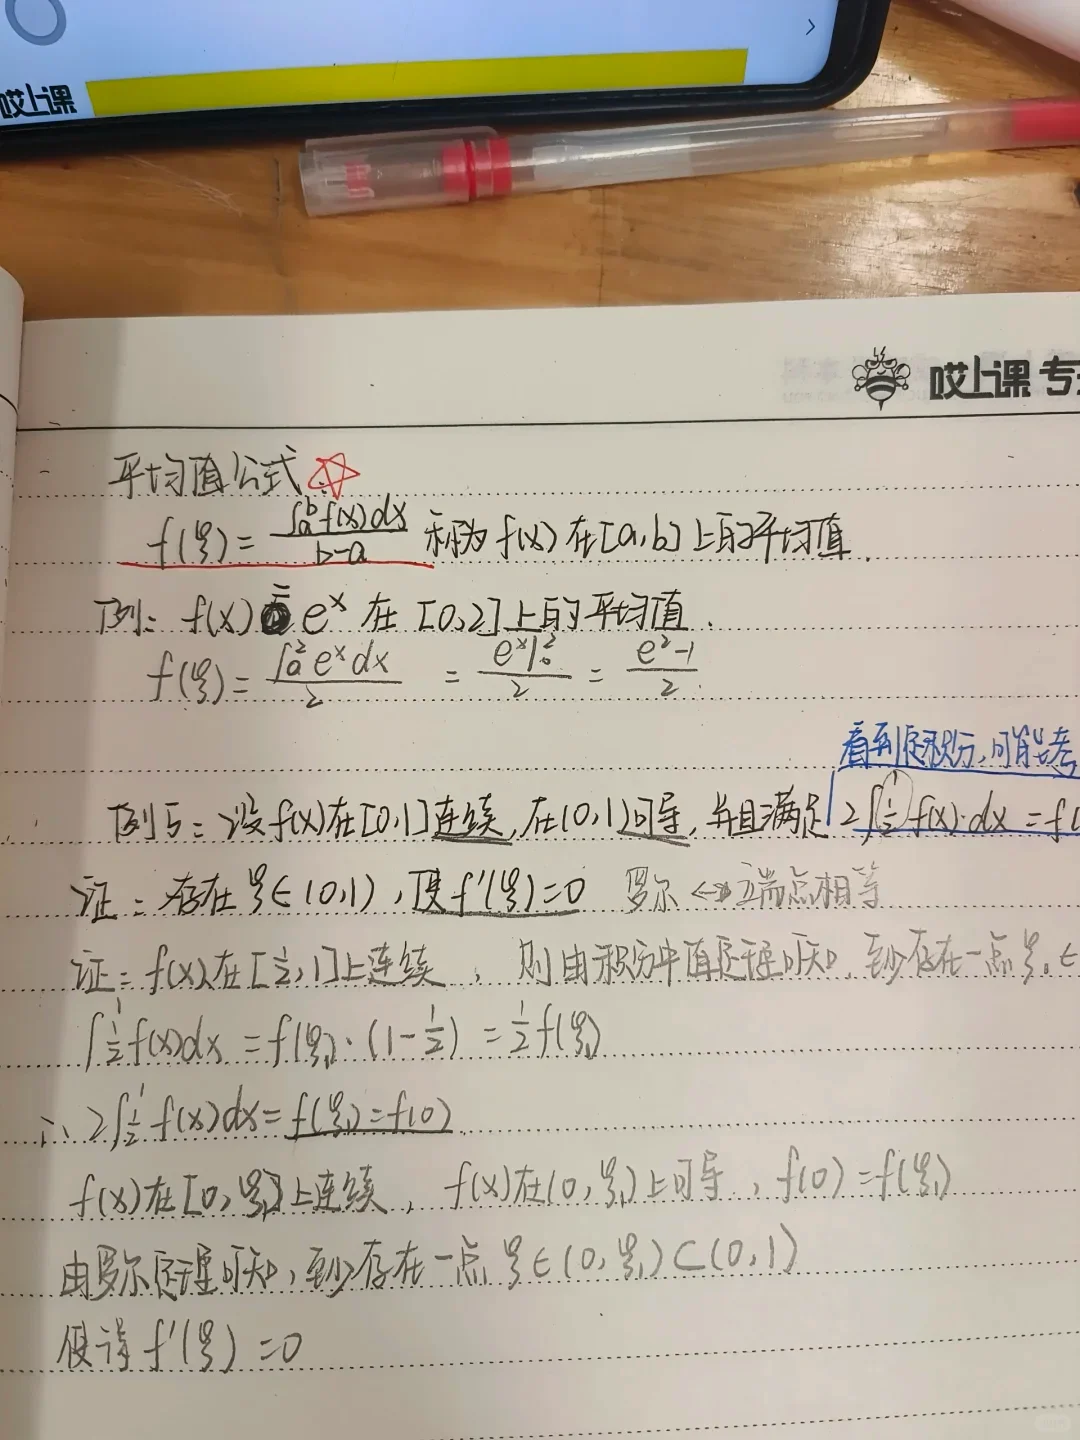 哎上课
哎上课 专
平均值公式
f(ξ) = ∫ₐᵇ f(x)dx / b-a 称为 f(x) 在[a,b]上的平均值.
例: f(x) = eˣ 在 [0,2]上的平均值.
f(ξ) = ∫₀² eˣ dx / 2 = eˣ|₀² / 2 = e²-1 / 2.
看到定积分,可能考
例5: 设f(x)在[0,1]连续,在(0,1)可导,并且满足 2∫_{1/2}^1 f(x)·dx = f(
证: 存在 ξ∈(0,1), 使 f'(ξ)=0 罗尔 <-> 端点相等
证: f(x)在[1/2,1]上连续, 则由积分中值定理可知,至少存在一点ξ₁∈
∫_{1/2}^1 f(x)dx = f(ξ₁)·(1-1/2) = 1/2 f(ξ₁)
∴ 2∫_{1/2}^1 f(x)dx = f(ξ₁) = f(0)
f(x)在[0,ξ₁]上连续, f(x)在(0,ξ₁)上可导, f(0)=f(ξ₁)
由罗尔定理可知,至少存在一点 ξ∈(0,ξ₁)⊂(0,1)
使得 f'(ξ)=0